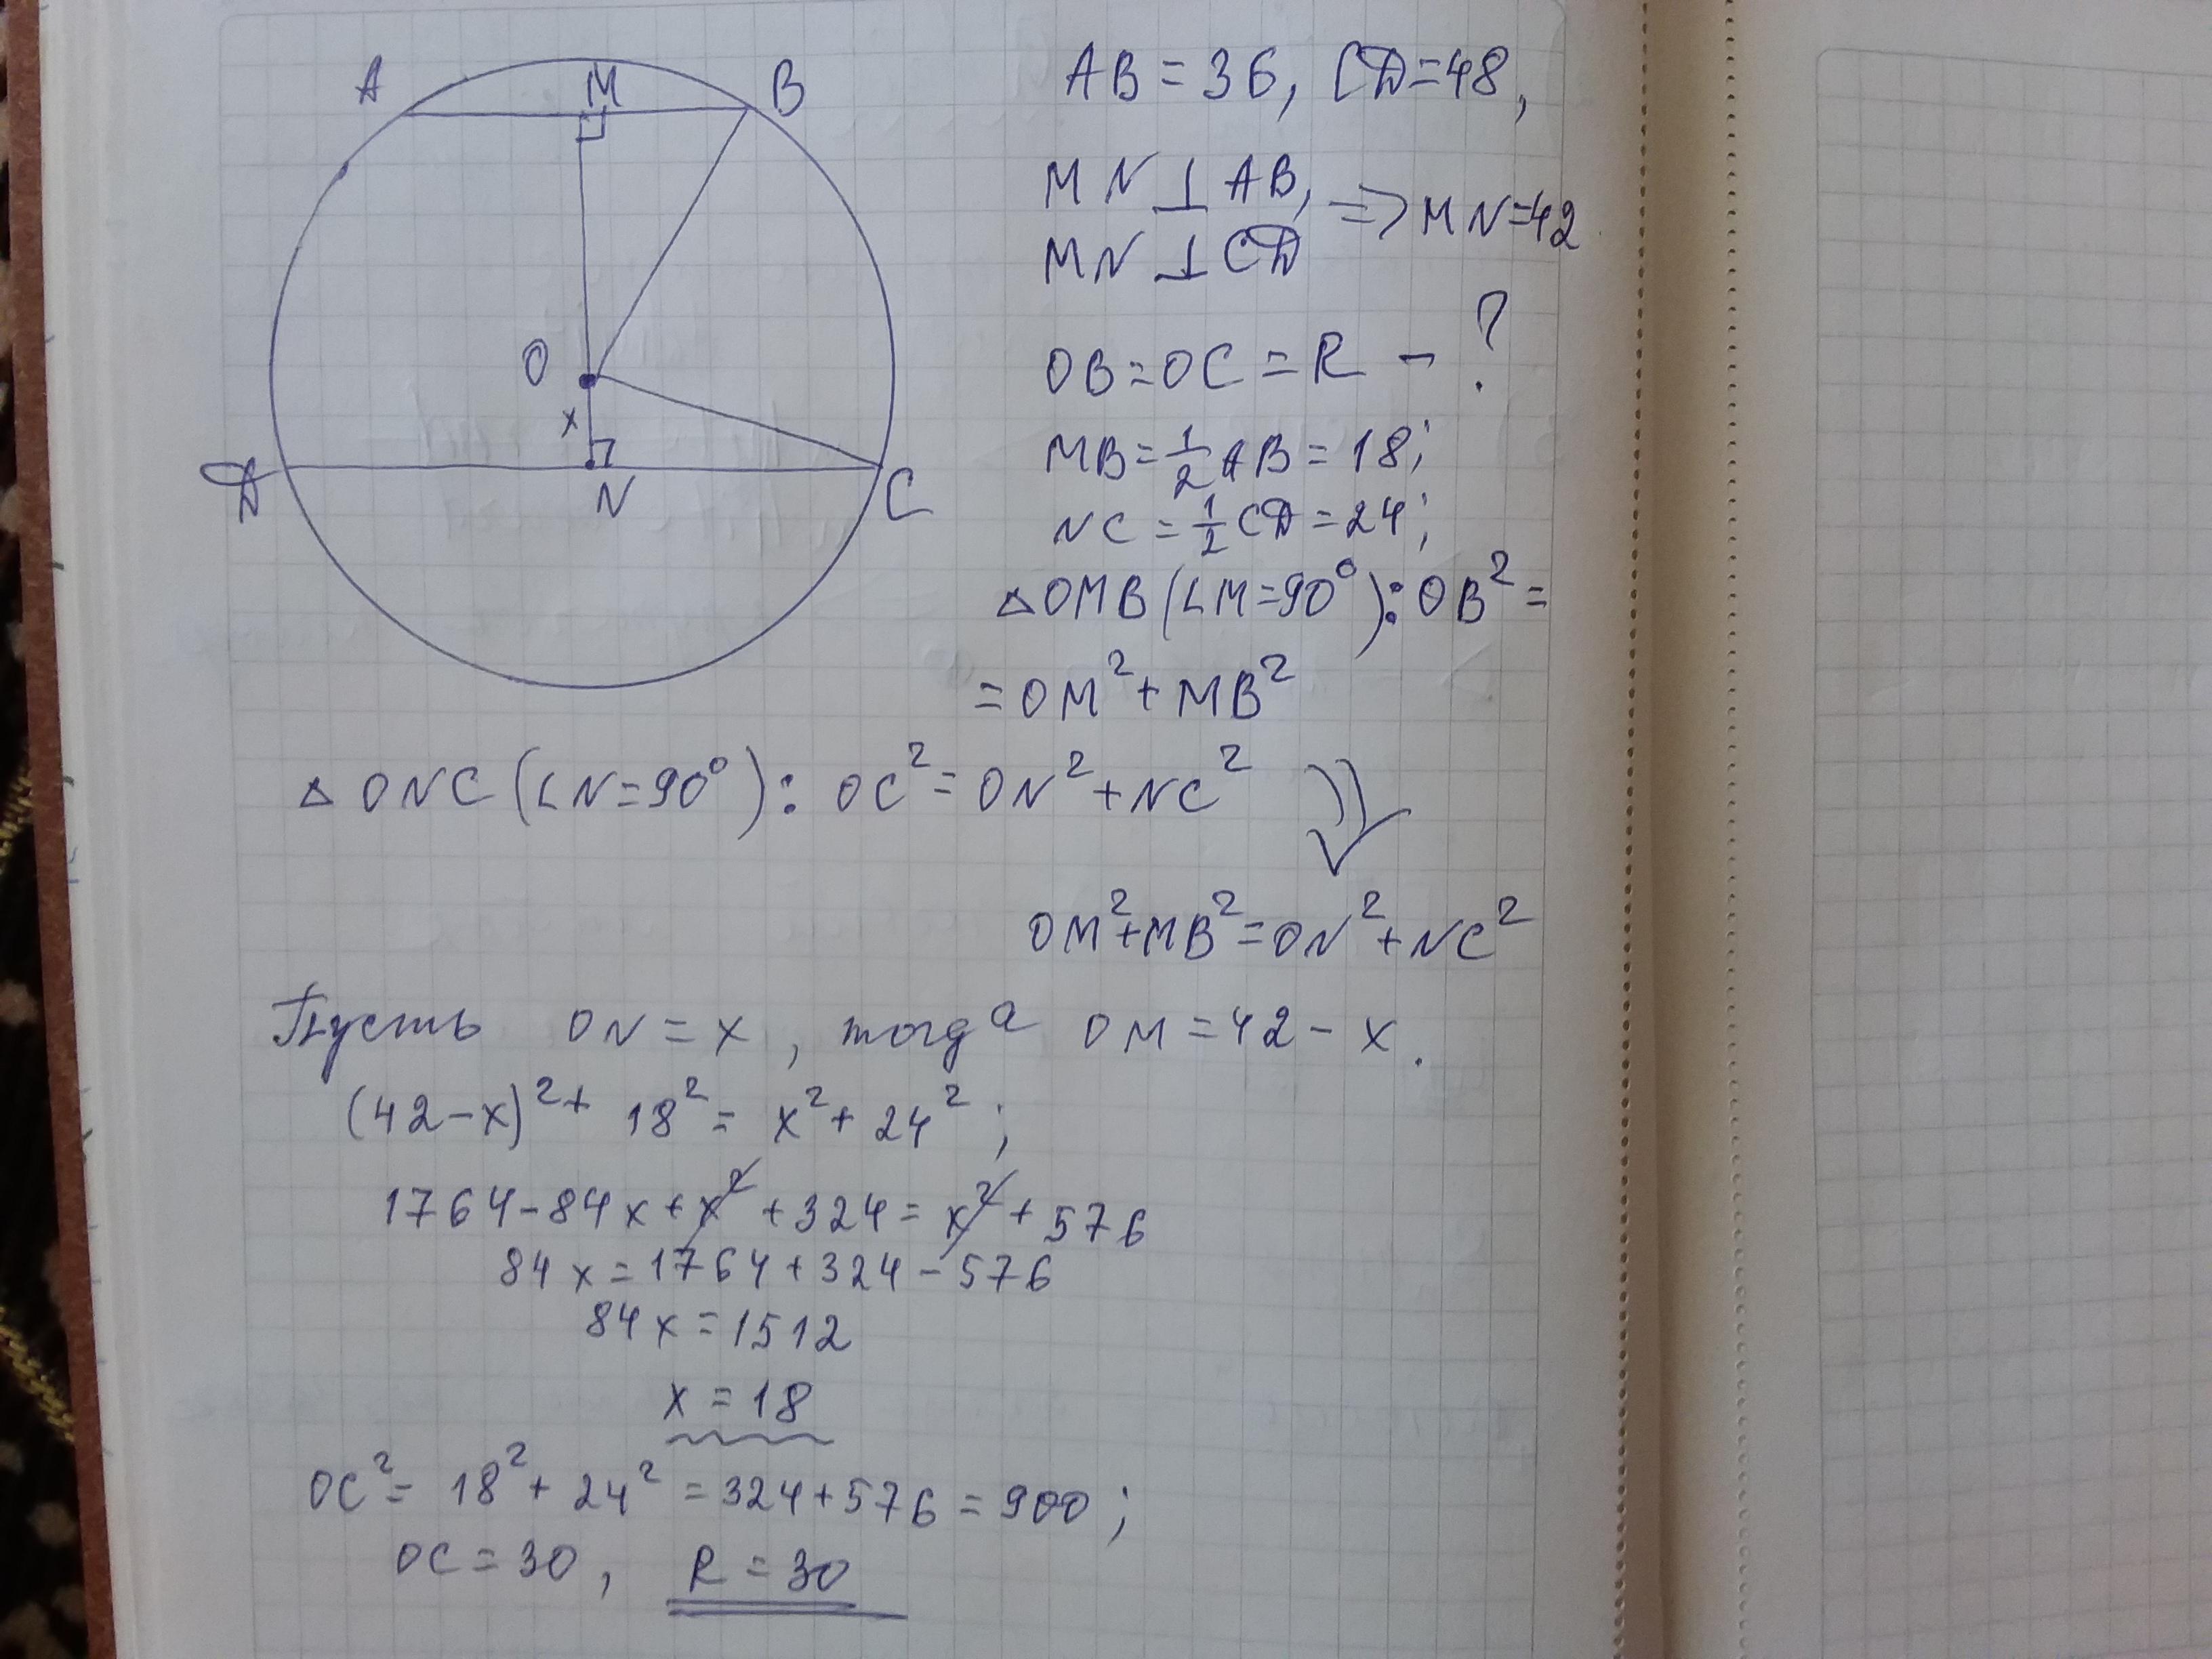 A
M
B
O
x
D
N
C
AB = 36, CD = 48,
MN ⊥ AB,
MN ⊥ CD
=> MN = 42
OB = OC = R - ?
MB = 1/2 AB = 18;
NC = 1/2 CD = 24;
△OMB (∠M = 90°): OB² =
= OM² + MB²
△ONC (∠N = 90°): OC² = ON² + NC²
OM² + MB² = ON² + NC²
Пусть ON = x, тогда OM = 42 - x.
(42 - x)² + 18² = x² + 24²;
1764 - 84x + x² + 324 = x² + 576
84x = 1764 + 324 - 576
84x = 1512
x = 18
OC² = 18² + 24² = 324 + 576 = 900;
OC = 30, R = 30